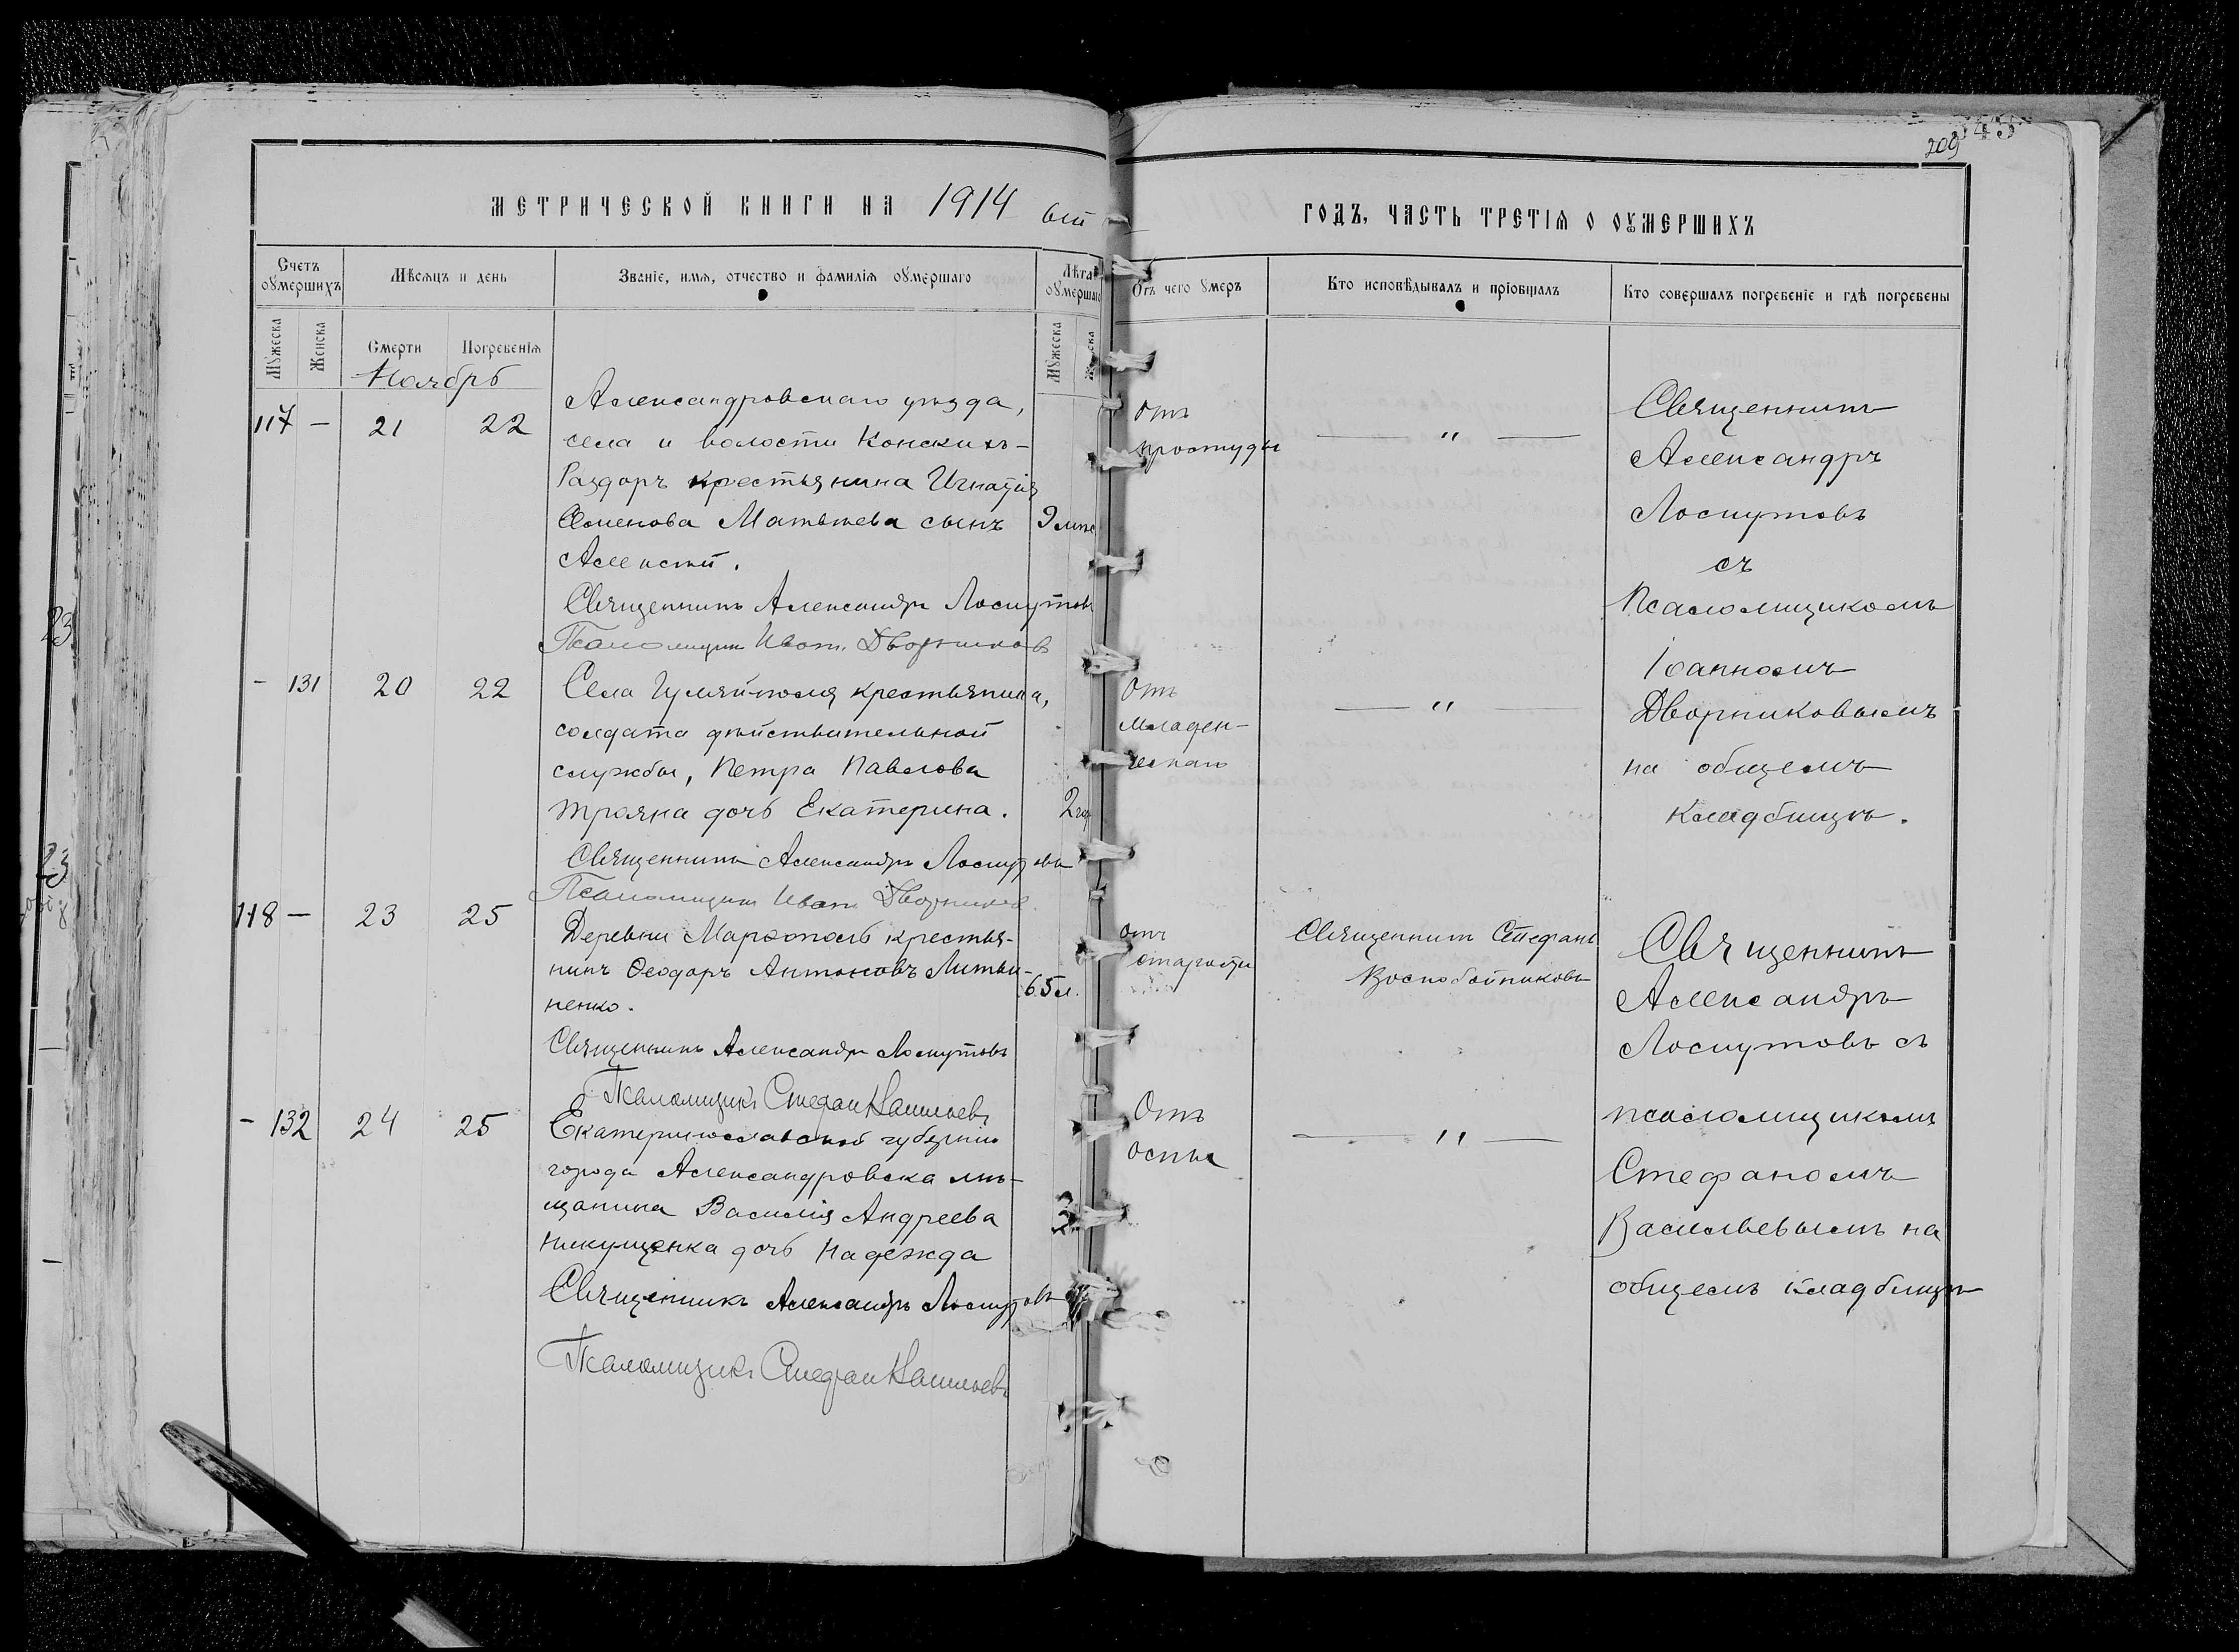 209
МЕТРИЧЕСКОЙ КНИГИ НА 1914 ый
ГОДЪ, ЧАСТЬ ТРЕТІЯ О ОУМЕРШИХЪ
Счетъ оумершихъ
Мѣсяцъ и день
Званіе, имя, отчество и фамилія оумершаго
Лѣта оумершаго
Отъ чего умеръ
Кто исповѣдывалъ и пріобщалъ
Кто совершалъ погребеніе и гдѣ погребены
Мужеска
Женска
Смерти
Погребенія
Мужеска
Ноябрь
117 — 21 22
Александровскаго уѣзда,
села и волости Конскихъ-
Раздоръ крестьянина Игнатія
Семенова Матвѣева сынъ
Алексѣй.
9 мѣс
Отъ
простуды
— " —
Священникъ Александръ Лоскутовъ
Псаломщикъ Иванъ Дворниковъ
- 131 20 22
Села Гуляй-поля крестьянина,
солдата дѣйствительной
службы, Петра Павлова
Трояна дочь Екатерина.
2 год
Отъ
младен-
ческаго
— " —
Священникъ Александръ Лоскутовъ
Псаломщикъ Иванъ Дворниковъ
Священникъ
Александръ
Лоскутовъ
съ
Псаломщикомъ
Іоанномъ
Дворниковымъ
на общемъ
кладбищѣ.
118 — 23 25
Деревни Марфополь крестья-
нинъ Ѳеодоръ Антоновъ Литви-
ненко.
65 л.
отъ
старости
Священникъ Стефанъ
Воскобойниковъ
Священникъ Александръ Лоскутовъ
Псаломщикъ Стефан Васильевъ
- 132 24 25
Екатеринославской губерніи
города Александровска мѣ-
щанина Василія Андреева
дочь Надежда
3
Отъ
оспы
— " —
Священникъ Александръ Лоскутовъ
Псаломщикъ Стефан Васильевъ
Священникъ
Александръ
Лоскутовъ съ
псаломщикомъ
Стефаномъ
Васильевымъ на
общемъ кладбищѣ